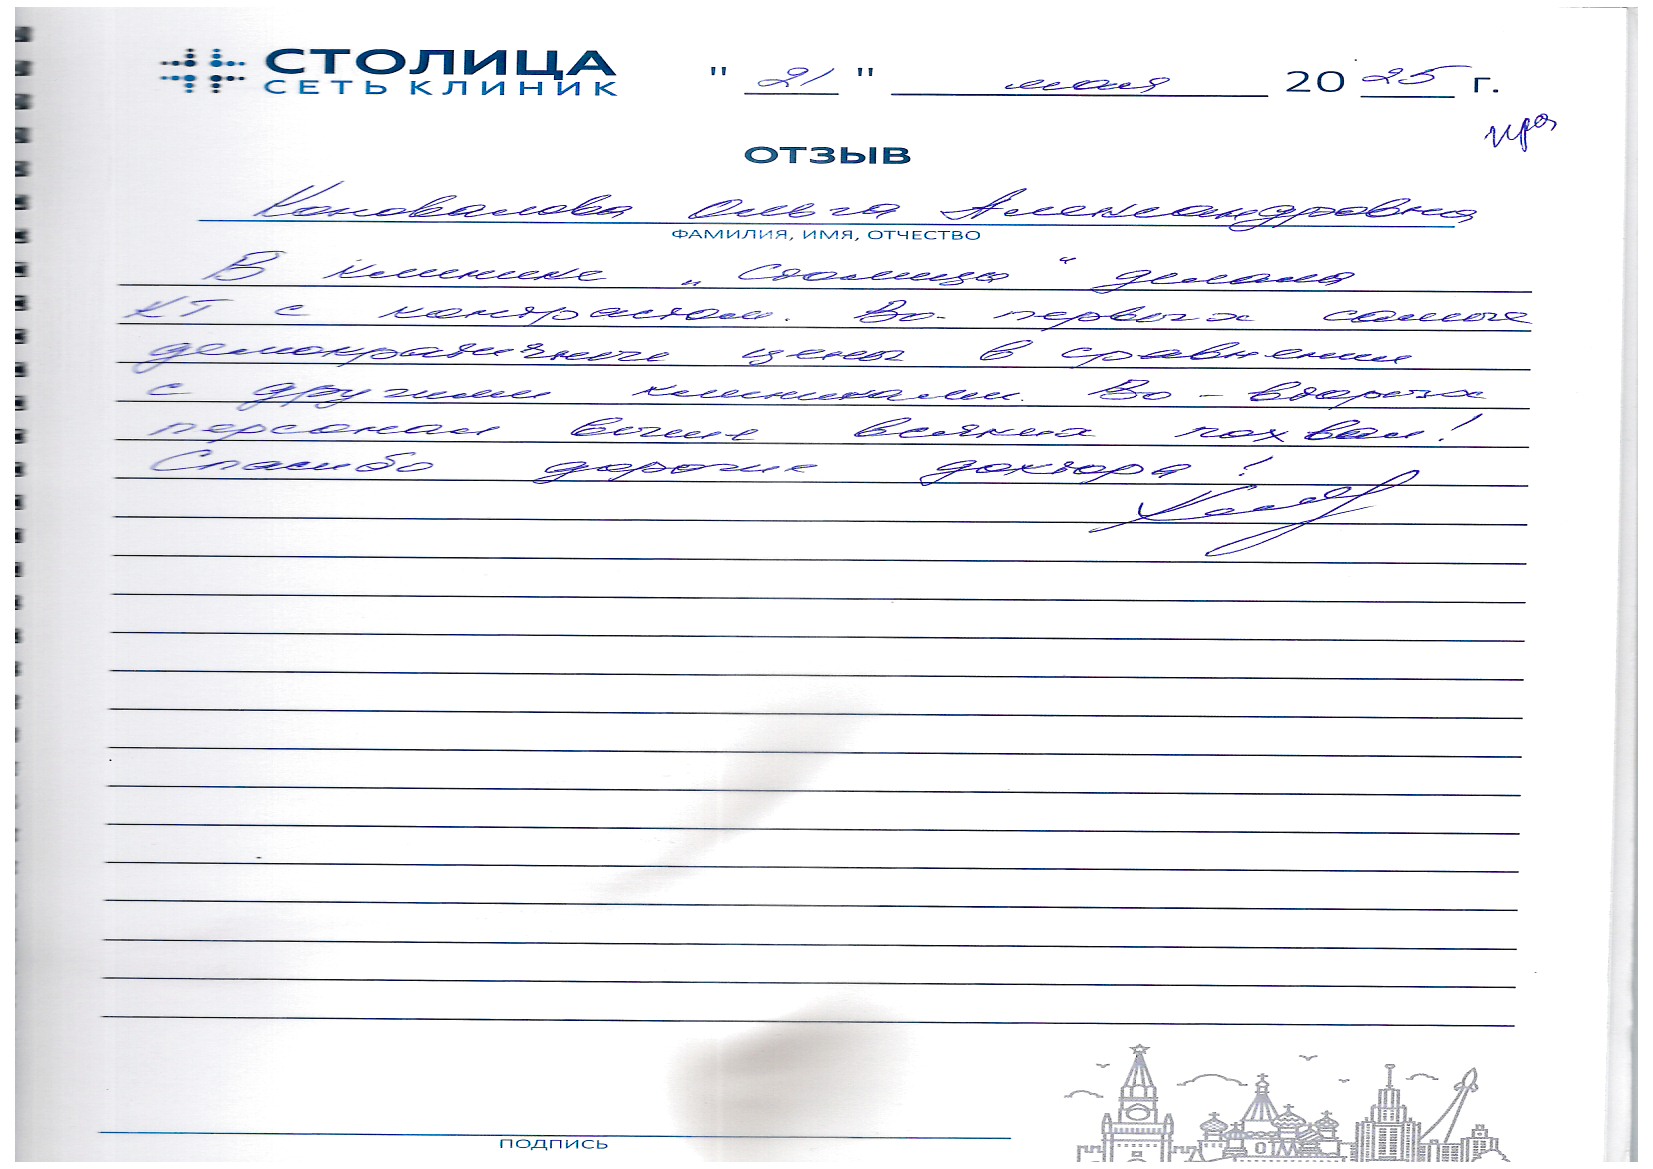 СТОЛИЦА
СЕТЬ КЛИНИК
" 21 " мая 20 25 г.
ОТЗЫВ
Коновалова Ольга Александровна
ФАМИЛИЯ, ИМЯ, ОТЧЕСТВО
В клинике „Столица“ делала
КТ с контрастом. Во-первых самые
демократичные цены в сравнении
с другими клиниками. Во-вторых
персонал выше всяких похвал!
Спасибо дорогие доктора!
ПОДПИСЬ